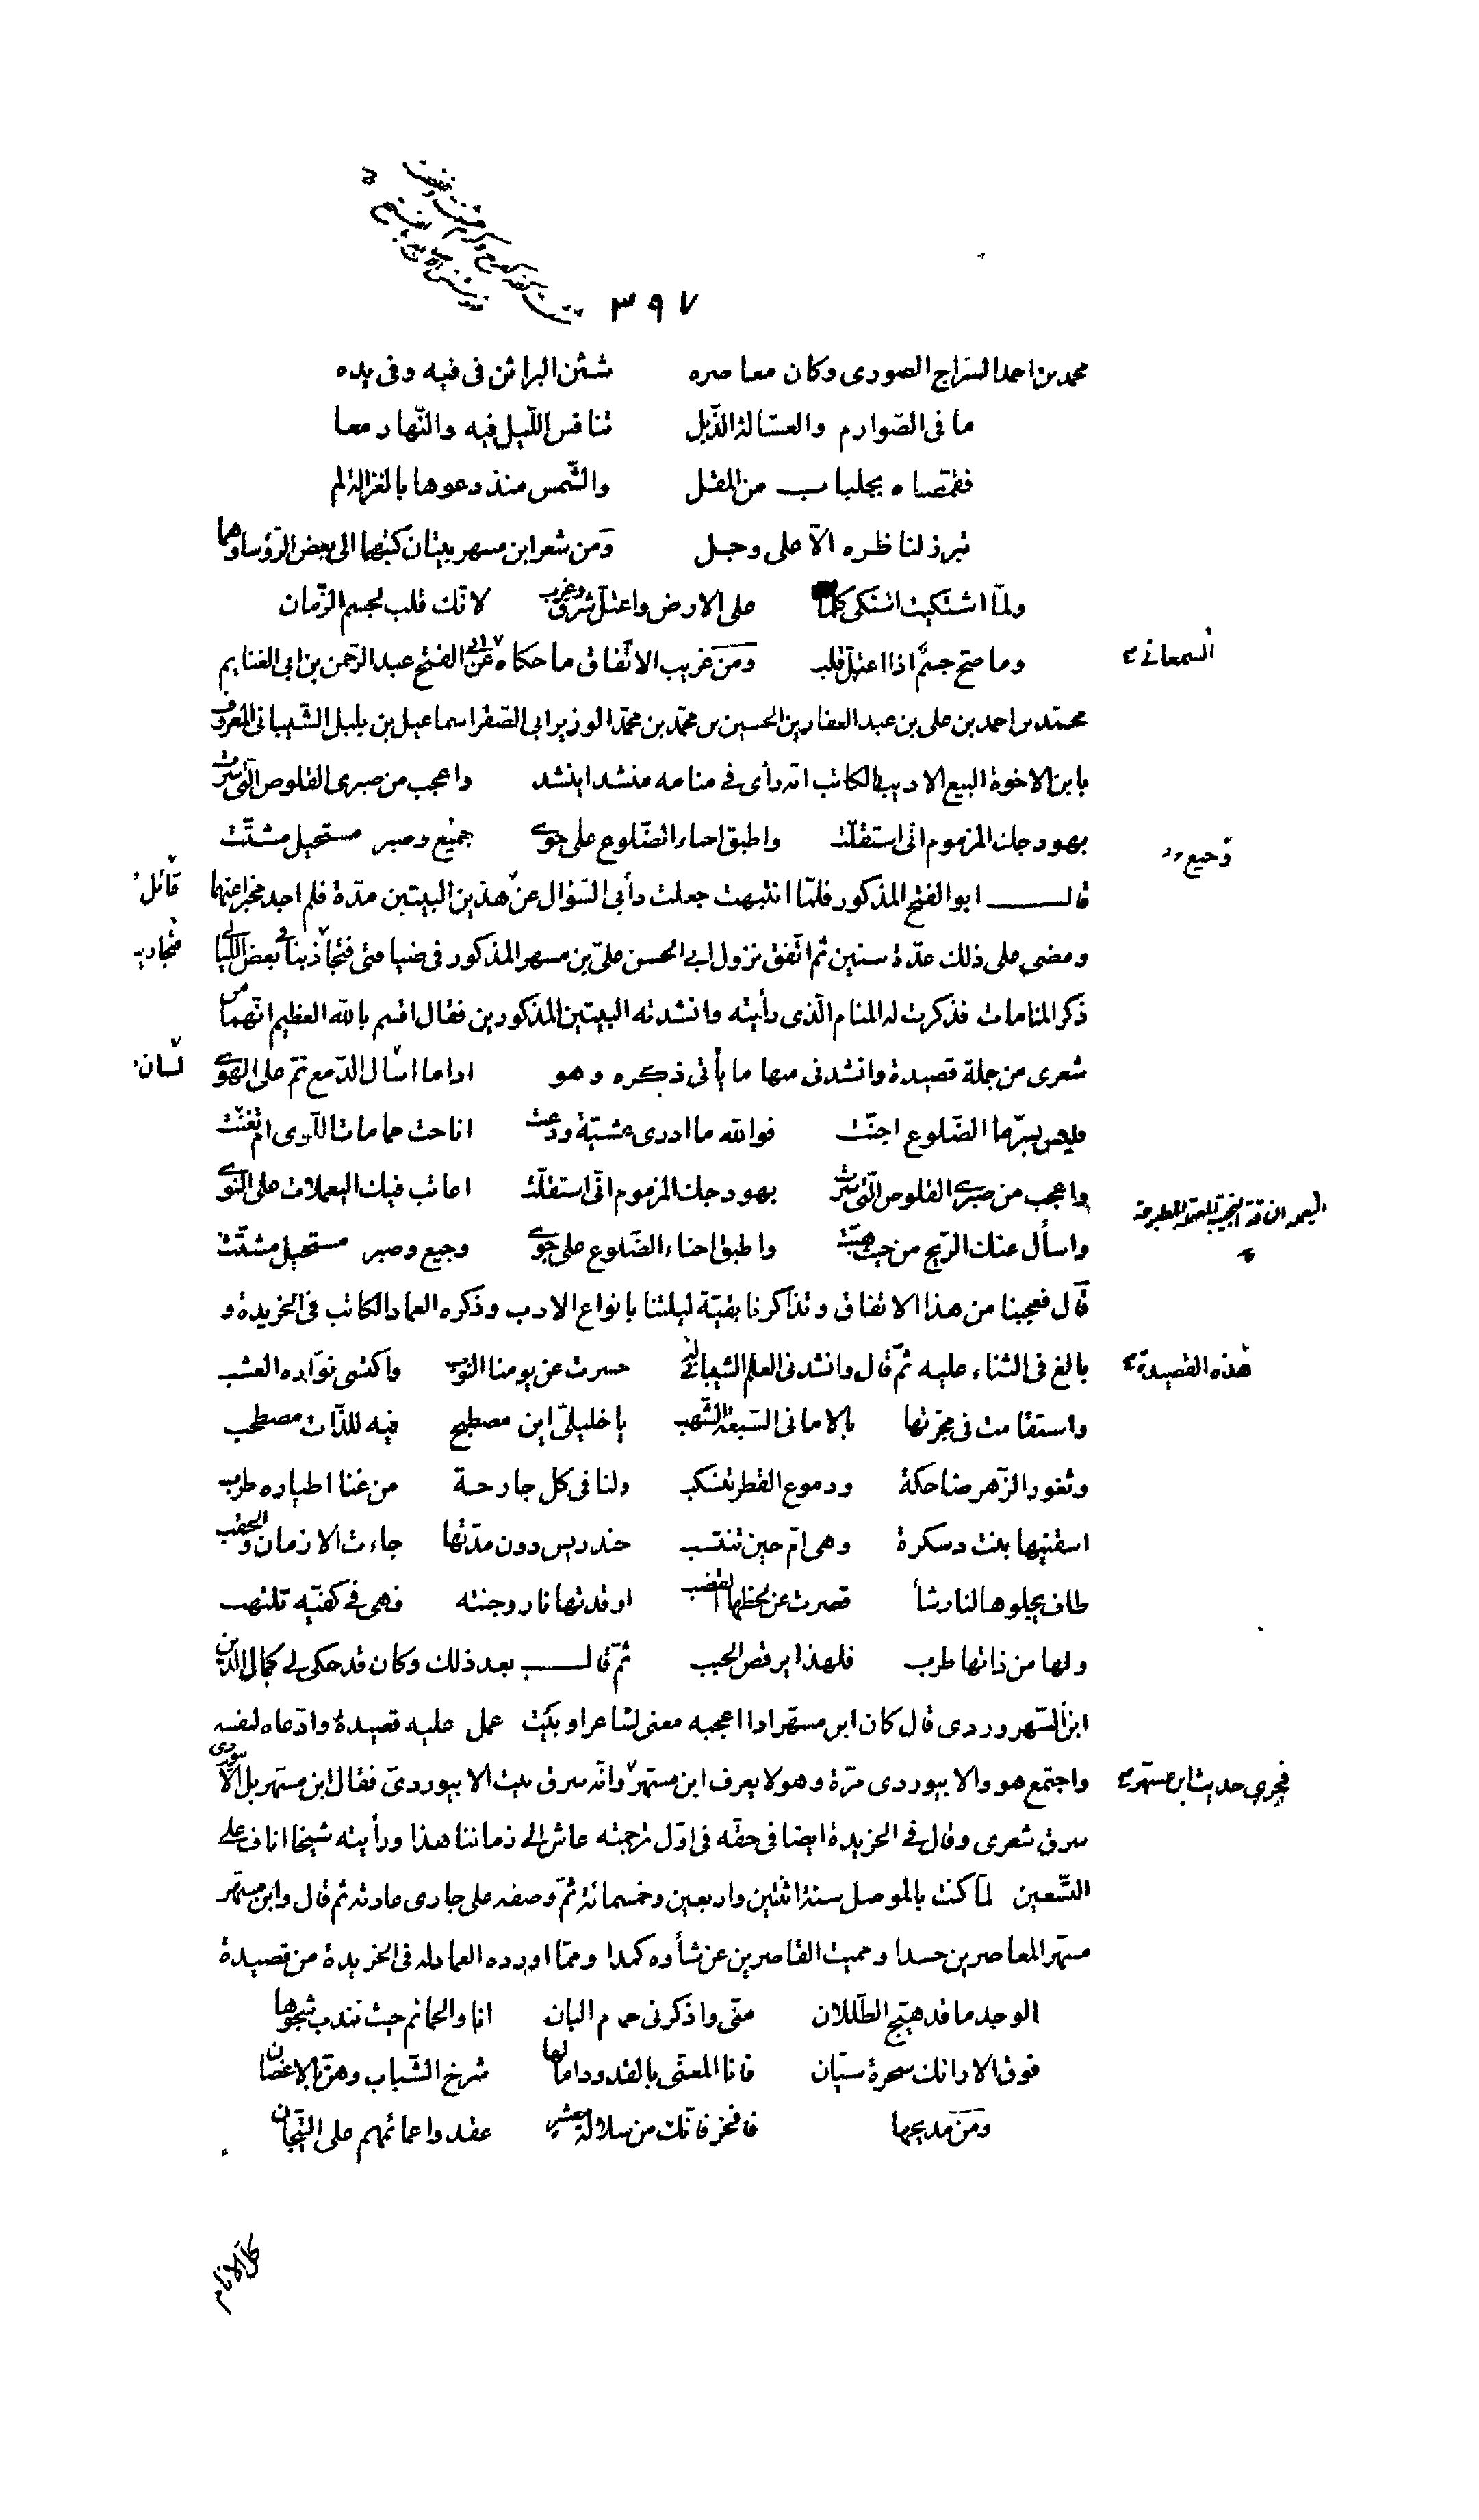 ٣٩٧
محمد بن احمد السراج الصوری وکان معاصره شثن البراثن فی فیه وفی یده
ما فی الصّوارم والعسّالة الذّبل تنافس اللّیل فیه والنّهار معا
فقمّصاه بجلباب من المقل والشّمس منذ دعوها بالغزالة لم
تبرز لناظره الّا علی وجل ومن شعر ابن مسهر بیتان کتبهما الی بعض الرّؤسا وهما
ولمّا اشتکیت اشتکی کلّما علی الارض واعتلّ شرق وغرب لانّک قلب لجسم الزّمان
وما صحّ جسمٌ اذا اعتلّ قلب ومن غریب الاتّفاق ما حکاه عن ابی الفتح عبد الرّحمن بن ابی الغنایم
السمعانی
محمّد بن احمد بن علی بن عبد الغفار بن الحسین بن محمّد بن محمّد الوزیر ابی الصّقر اسماعیل بن بلبل الشّیبانی المعروف
بابن الاخوة البیع الادیب الکاتب انّه رأی فی منامه منشدا ینشد واعجب من صبری القلوص الّتی سرت
بهودجک المزموم انّی استقلّت واطبق احناء الضّلوع علی جوی جمیع وصبر مستحیل مشتّت
وجیع
قال ابو الفتح المذکور فلمّا انتبهت جعلت دأبی السّؤال عن هذین البیتین مدّة فلم اجد مخبرا عنهما
قائل
ومضی علی ذلک عدّة سنین ثم اتّفق نزول ابی الحسن علیّ بن مسهر المذکور فی ضیافتی فتجاذبنا فی بعض اللیالی
فتجارینا
ذکر المنامات فذکرت له المنام الّذی رأیته وانشدته البیتین المذکورین فقال اقسم بالله العظیم انّهما من
شعری من جملة قصیدة وانشدنی منها ما یأتی ذکره وهو اذا ما اسال الدّمع نمّ علی الهوی
لسان
فلیس بسرّ ما الضّلوع اجنّت فوالله ما ادری عشیّة ودعت اناحت حمامات اللوی ام تغنّت
واعجب من صبری القلوص الّتی سرت بهودجک المزموم انّی استقلّت اعاتب فیک الیعملات علی النّوی
الیعمله الناقة النجیبة المعتملة المطبوعة
واسأل عنک الرّیح من حیث هبّت واطبق احناء الضّلوع علی جوی وجیع وصبر مستحیل مشتّت
قال فعجبنا من هذا الاتفاق وتذاکرنا بقیّة لیلتنا بانواع الادب وذکره العماد الکاتب فی الخریدة و
بالغ فی الثناء علیه ثمّ قال وانشدنی العلم الشیبانی له حسرت عن یومنا النّوب واکتسی نوّاره العشب
هذه القصیدة
واستقامت فی مجرّتها بالامانی السّبعة الشّهب یا خلیلیّ این مصطبح فیه للذّات مصطحب
وثغور الزّهر ضاحکة ودموع القطر تنسکب ولنا فی کل جارحة من غنا اطیاره طرب
اسقنیها بنت دسکرة وهی امّ حین تنتسب خندریس دون مدّتها جاءت الازمان والحقب
طاف یجلوها لنا رشأ قصرت عن لحظها القضب اوقدتها نار وجنته فهی فی کفّیه تلتهب
ولها من ذاتها طرب فلهذا یرقص الحبب ثمّ قال بعد ذلک وکان قد حکی لی کمال الدّین
ابن السّهروردی قال کان ابن مسهّر اذا اعجبه معنی لشاعر او بیت عمل علیه قصیدة وادّعاه لنفسه
واجتمع هو والابیوردی مرّة وهو لا یعرف ابن مسهّر وانّه سرق بیت الابیوردیّ فقال ابن مسهّر بل الابیوردی
فجری حدیث ابن مسهّر
سرق شعری وقال فی الخریدة ایضا فی حقّه فی اوّل ترجمته عاش الی زماننا هذا ورأیته شیخا اناف علی
التسعین لمّا کنت بالموصل سنة اثنتین واربعین وخمسمائة ثمّ وصفه علی جاری عادته ثم قال وابن مسهّر
مسهّر المعاصرین حسدا وممیت القاصرین عن شأوه کمدا وممّا اورده العماد له فی الخریدة من قصیدة
الوجد ما قد هیّج الطّللان منّی واذکرنی حمام البان انا والحمائم حیث تندب شجوها
فوق الاراک سحرة سیّان فانا المعنّی بالقدود امالها شرخ الشّباب وهنّ بالاغصان
ومن مدیحها فافخر فانّک من سلالة معشر عقدوا عمائمهم علی التّیجان
کل الانام